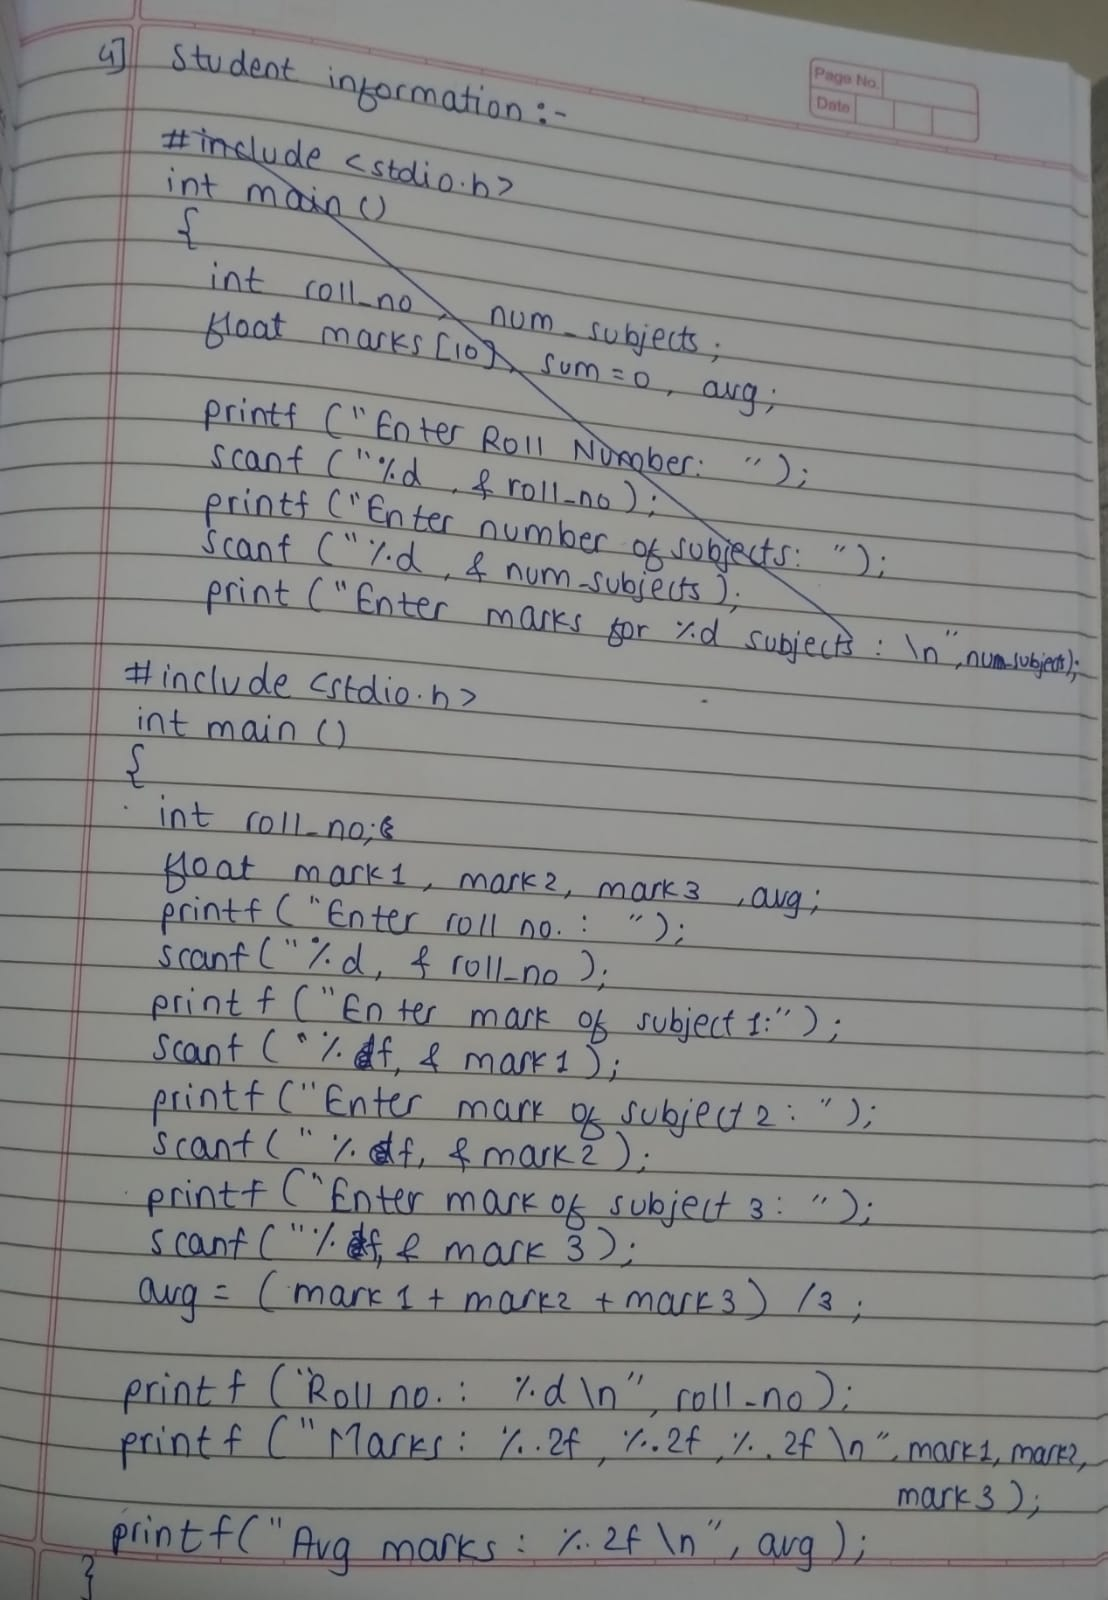 4] Student information :-
Page No.
Date
#include <stdio.h>
int main ()
{
int roll_no, num_subjects;
float marks [10], sum=0, avg;
printf ("Enter Roll Number: ");
scanf ("%d, & roll_no);
printf ("Enter number of subjects: ");
scanf ("%d, & num_subjects);
print ("Enter marks for %d subjects : \n", num_subjects);
#include <stdio.h>
int main ()
{
int roll_no;
float mark1, mark2, mark3, avg;
printf ("Enter roll no. : ");
scanf ("%d, & roll_no );
printf ("Enter mark of subject 1:");
scanf ("%f, & mark1 );
printf ("Enter mark of subject 2 : ");
scanf ( "%f, & mark2 );
printf ("Enter mark of subject 3 : ");
scanf ("%f, & mark 3);
avg = (mark1 + mark2 + mark3) /3;
printf ("Roll no. : %d \n", roll_no);
printf ("Marks : %.2f, %.2f, %.2f \n", mark1, mark2,
mark3);
printf("Avg marks : %.2f \n", avg);
}